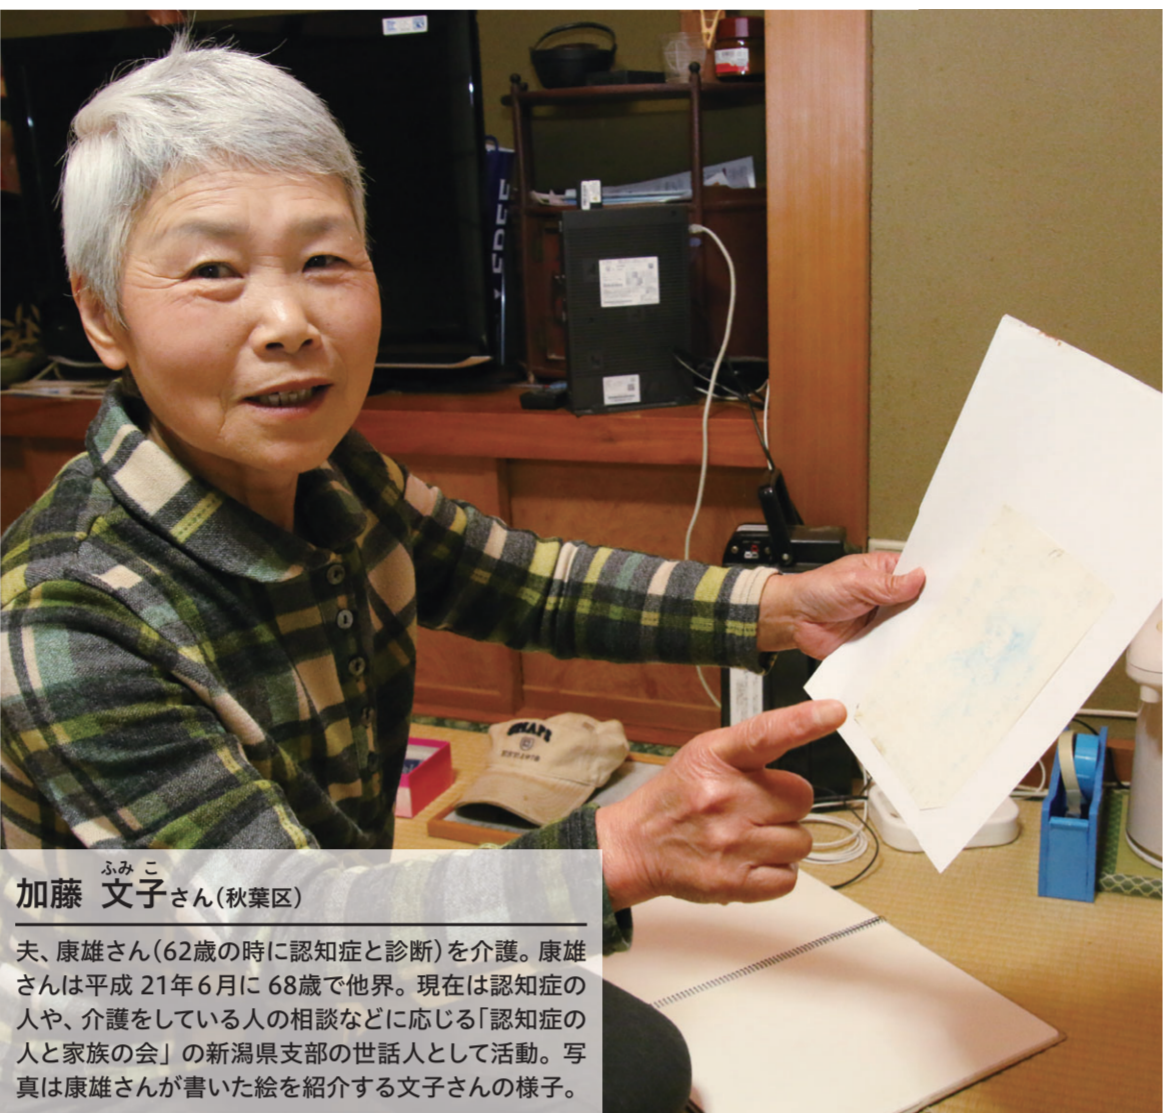 ふみ こ
加藤 文子さん(秋葉区)
夫、康雄さん(62歳の時に認知症と診断)を介護。康雄
さんは平成 21年6月に 68歳で他界。現在は認知症の
人や、介護をしている人の相談などに応じる「認知症の
人と家族の会」の新潟県支部の世話人として活動。写
真は康雄さんが書いた絵を紹介する文子さんの様子。